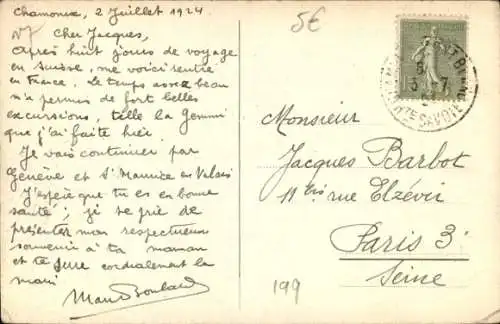 Chamonix, 2 Juillet 1924
5€
N° Cher Jacques,
Après huit jours de voyage
en Suisse, me voici rentré
en France. Le temps assez beau
m'a permis de fort belles
excursions, telle la Gemmi
que j'ai faite hier.
Je vais continuer par
Genève et St Maurice en Valais
J'espère que tu es en bonne
santé ; je te prie de
présenter mon respectueux
souvenir à ta maman
et te serre cordialement la
main
Monsieur
Jacques Barbot
11 bis rue Elzévir
Paris 3e
Seine
199